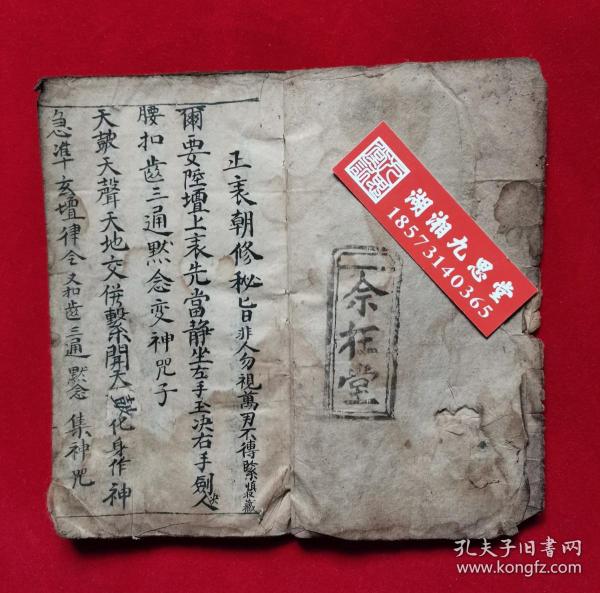 三余在堂
正表朝修秘旨非人勿視萬刃不傳緊緊藏
爾要陞壇上表先當静坐左手玉决右手劍决
腰扣齒三通黙念变神咒子
天皷天聲天地交併擊開天皷化身作神
急准十亥壇律令又扣齒三通黙念集神咒
湖湘九思堂
18573140365
孔夫子旧书网
www.kongfz.com